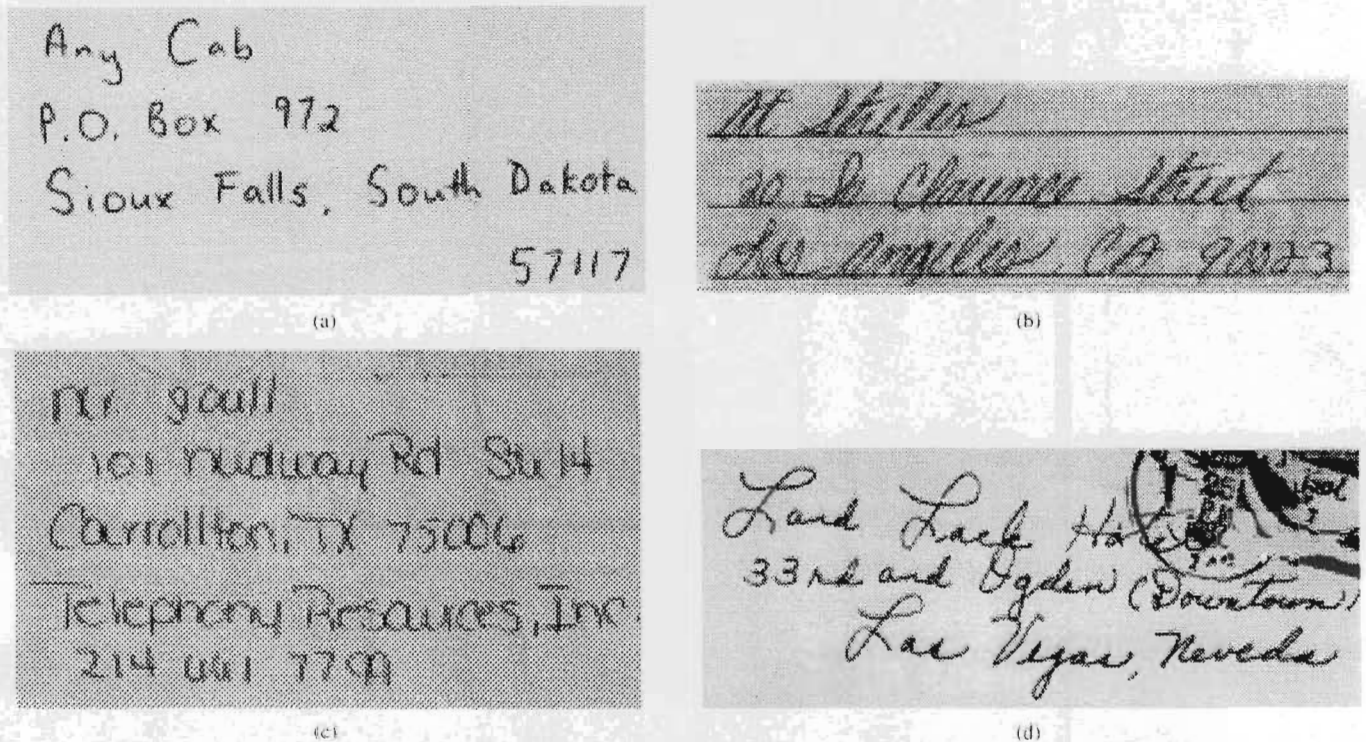 Any Cab
P.O. Box 972
Sioux Falls, South Dakota
57117
(a)
30 So Clarence Street
Los Angeles, CA 90023
(b)
Mr. goull
101 Midway Rd Ste 14
Carrollton, TX 75006
Telephony Resources, Inc.
214 661 7799
(c)
Lard Lack Hotel
33rd and Ogden (Downtown)
Las Vegas, Nevada
(d)